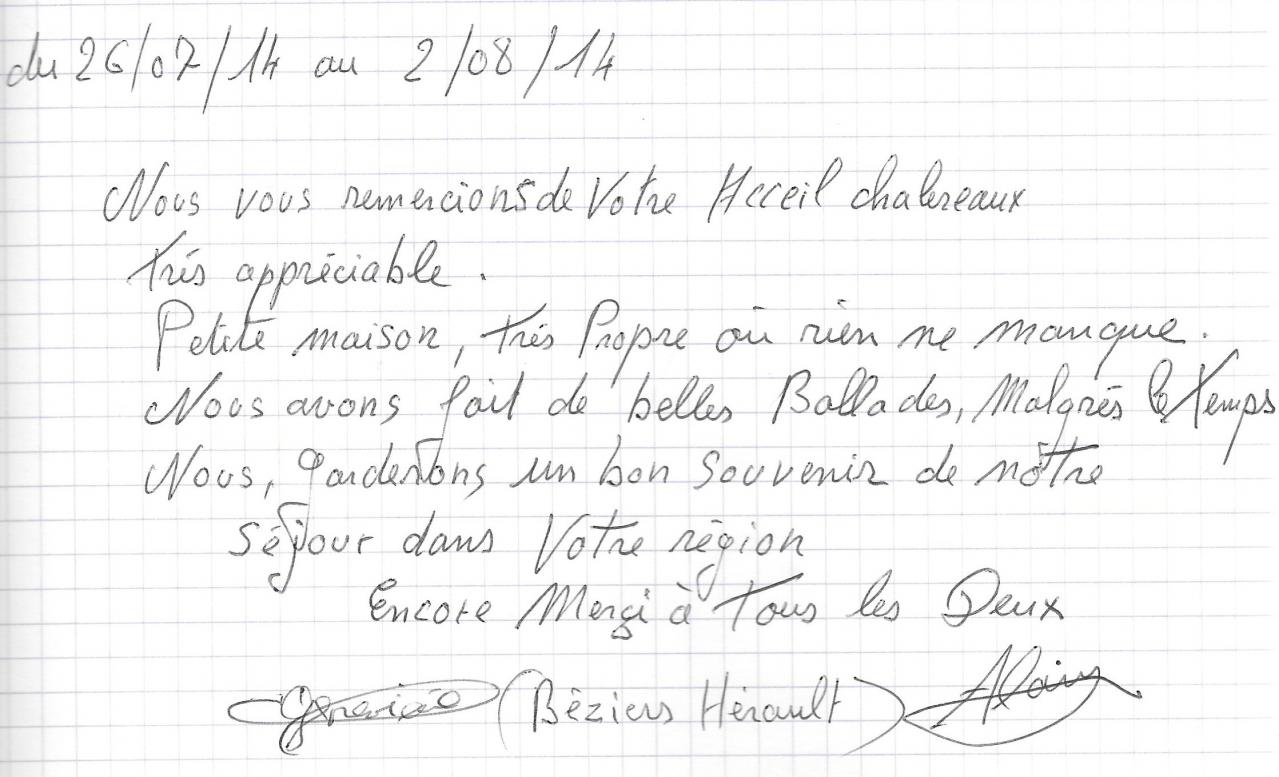 du 26/07/14 au 2/08/14
Nous vous remercions de Votre Acceil chalereaux
très appréciable.
Petite maison, très Propre où rien ne manque.
Nous avons fait de belles Ballades, Malgrés le temps
Nous, garderons un bon souvenir de nôtre
séjour dans Votre région
Encore Merçi à tous les Deux
(Béziers Hérault) Alain